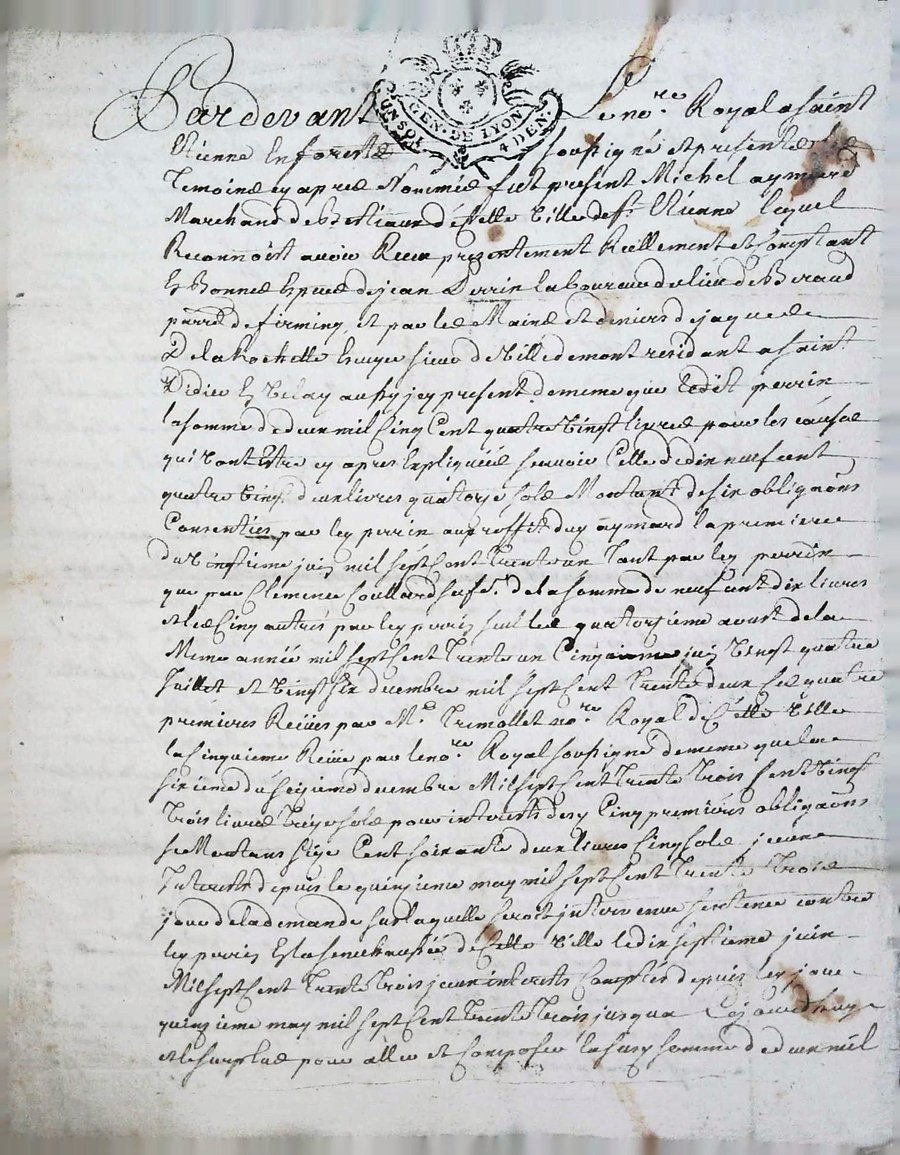 GEN. DE LYON
UN SOL 4 DEN.
Pardevant Le no.re Royal a saint
Etienne En forests soussigné et presents les
temoins cy apres Nommés fut present Michel aymard
Marchand de Bestiaux de cette ville de St Etienne lequel
Reconnoist avoir Receu presentement Reellement et Comptant
En Bonnes Especes de jean Perrin laboureur du lieu de
parrse de firminy et par les Mains et deniers de jaques
De la Rochette Ecuyer sieur de residant a saint
Didier En Velay aussy jcy present de meme que ledit perrin
la somme de deux mil Cinq Cent quatre Vingt livres pour les causes
qui Vont Estre cy apres Expliquées scavoir Celle de dix neuf cent
quatre Vingt deux livres quatorze sols Montant de six obligaons
Consenties par led perrin au proffit dud aymard la premiere
du Vingtieme juin Mil sept cent trente un tant par led perrin
que par Clemence sa fe. de la somme de neuf cent dix livres
et les Cinq autres par led perrin seul les quatorzieme aoust de la
Meme année mil sept cent trente un Cinquieme juin Vingt quatre
Juillet et Vingt six decembre mil sept cent trente deux les quatre
premieres Reçües par Me Tremollet no.re Royal de Cette Ville
la Cinquieme Reçüe par le no.re Royal soussigné de meme que la
sixieme du seizieme decembre Mil sept Cent trente trois Cent Vingt
trois livres treize sols pour interests des Cinq premieres obligaons
se Montans seize Cent soixante deux livres Cinq sols jceux
Interests depuis le quinzieme may mil sept Cent trente trois
jour de la demande sur laquelle seroit intervenue sentence contre
led perrin En la senechaussée de Cette Ville le dix septieme juin
Mil sept Cent trente trois jceux interests Comptés depuis led jour
quinzieme may mil sept Cent trente trois jusqua Cejourdhuy
et le surplus pour aller et Composer lad somme de deux mil